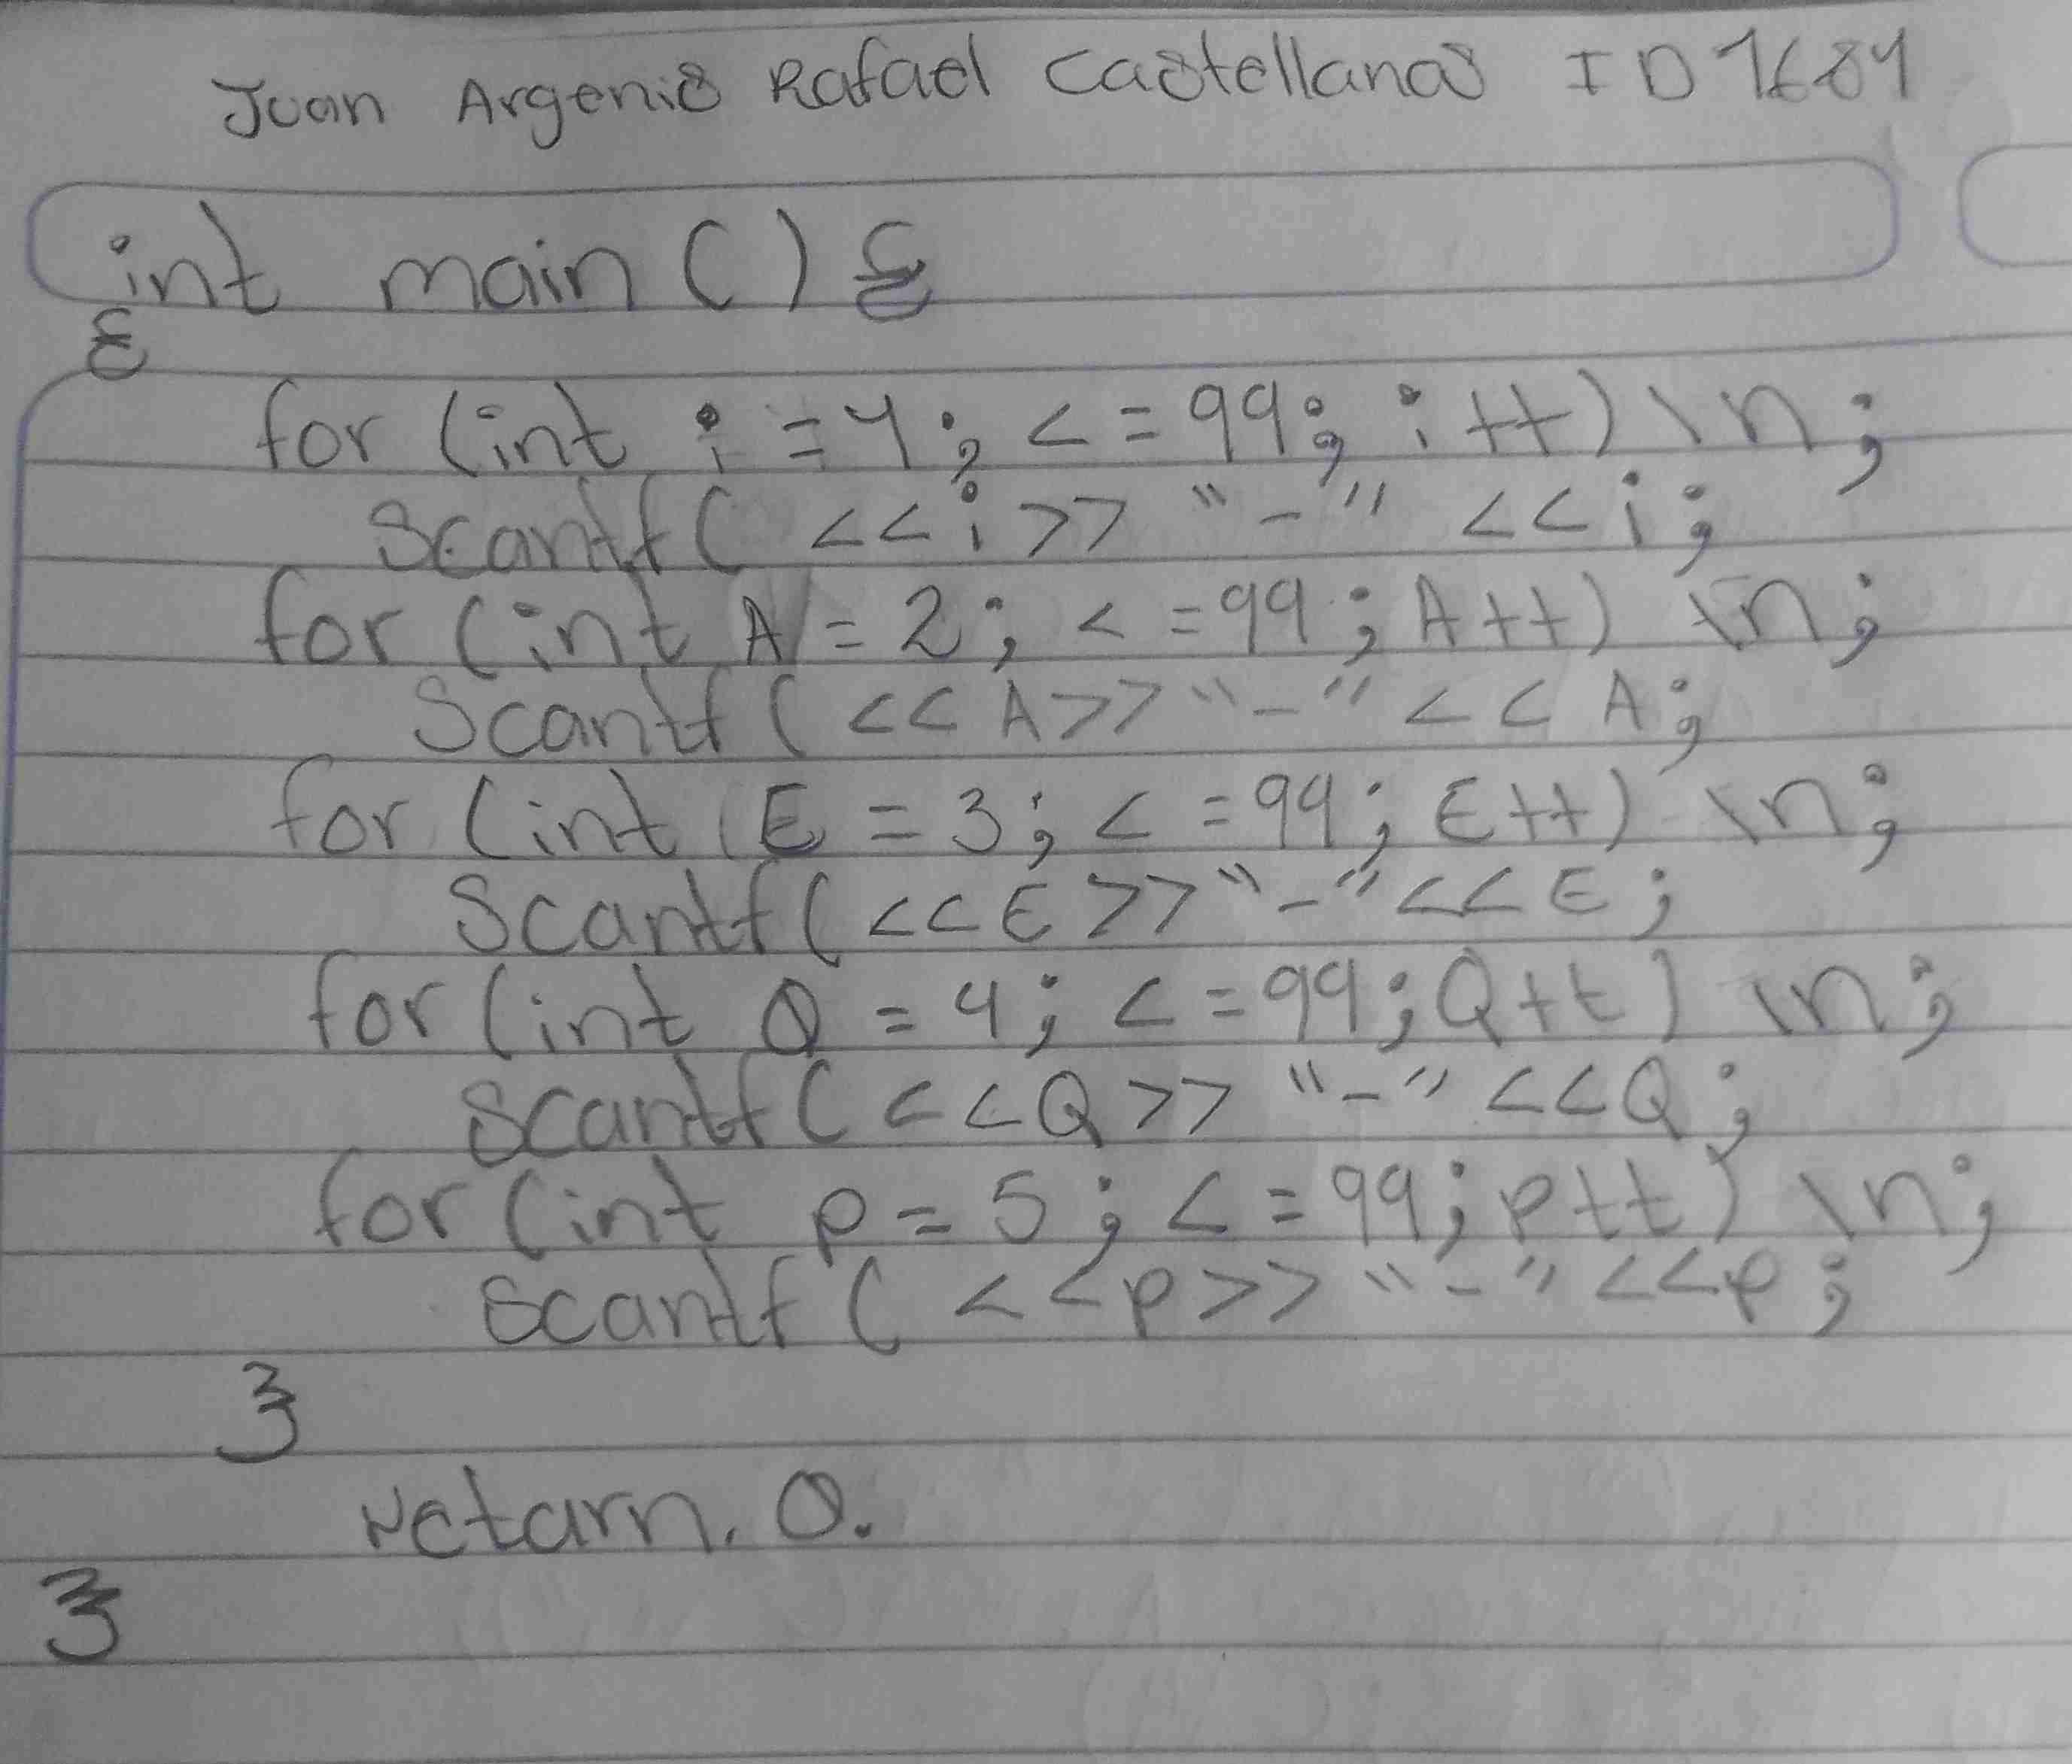 Juan Argenis Rafael Castellanos ID 1684
int main () {
{
for (int i = 1; <= 99; i++) \n;
Scantf( <<i>> "-" <<i;
for (int A = 2; <=99; A++) \n;
Scantf( <<A>> "-" <<A;
for (int E = 3; <=99; E++) \n;
Scantf( <<E>> "-" <<E;
for (int Q = 4; <=99; Q++) \n;
Scantf( <<Q>> "-" <<Q;
for (int p = 5; <=99; p++) \n;
Scantf( <<p>> "-" <<p;
}
retarn. 0.
}